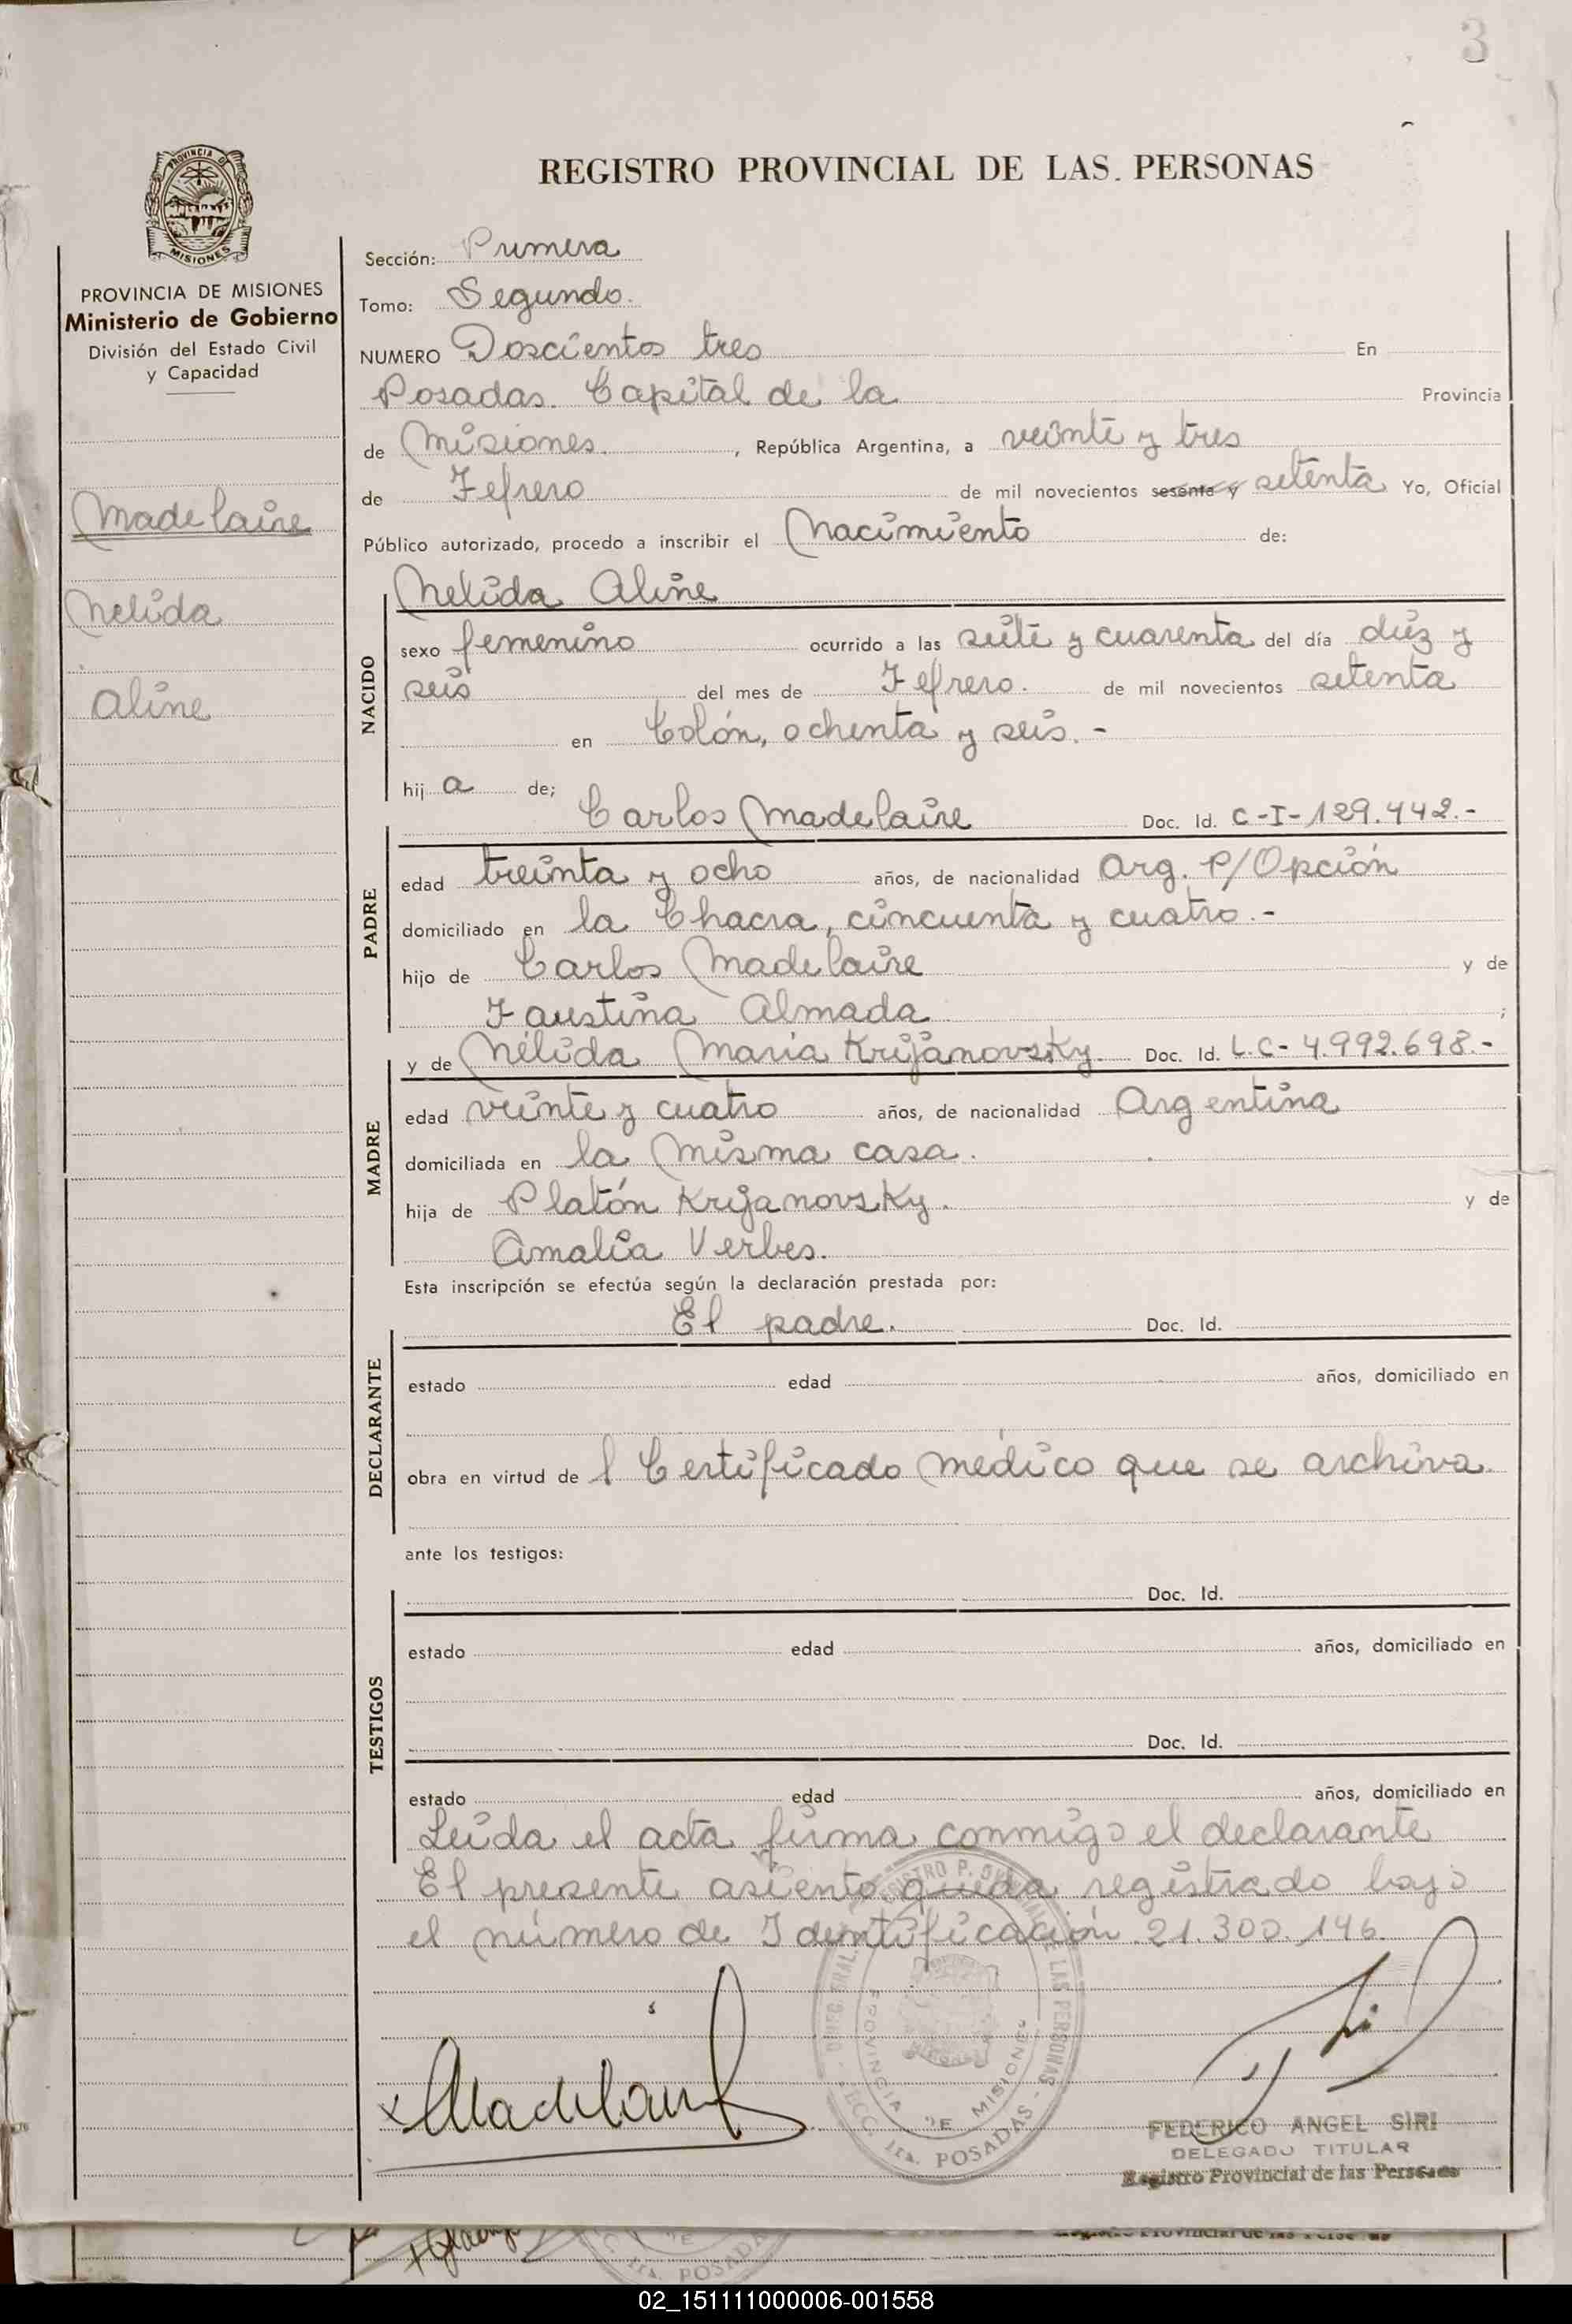 3
REGISTRO PROVINCIAL DE LAS PERSONAS
PROVINCIA DE MISIONES
PROVINCIA DE MISIONES
Ministerio de Gobierno
División del Estado Civil
y Capacidad
Madelaire
Nelida
Aline
Sección: Primera
Tomo: Segundo.
NUMERO Doscientos tres En
Posadas. Capital de la Provincia
de Misiones. , República Argentina, a veinte y tres
de Fefrero de mil novecientos sesenta y setenta Yo, Oficial
Público autorizado, procedo a inscribir el Nacimiento de:
NACIDO
Nelida Aline
sexo femenino ocurrido a las siete y cuarenta del día diez y
seis del mes de Fefrero. de mil novecientos setenta
en Colón, ochenta y seis.-
hij a de;
PADRE
Carlos Madelaire Doc. Id. C-I-129.442.-
edad treinta y ocho años, de nacionalidad Arg. P/Opción
domiciliado en la Chacra, cincuenta y cuatro.-
hijo de Carlos Madelaire y de
Faustina Almada ;
MADRE
y de Nélida Maria Krijanovsky. Doc. Id. L.C- 4.992.698.-
edad veinte y cuatro años, de nacionalidad Argentina
domiciliada en la misma casa.
hija de Platón Krijanovsky. y de
Amalia Verbes.
Esta inscripción se efectúa según la declaración prestada por:
DECLARANTE
El padre. Doc. Id.
estado edad años, domiciliado en
obra en virtud de l Certificado médico que se archiva.
ante los testigos:
TESTIGOS
Doc. Id.
estado edad años, domiciliado en
Doc. Id.
estado edad años, domiciliado en
Leida el acta firma conmigo el declarante
El presente asiento queda registrado bajo
el número de Identificación 21.300.146.
Madelaire
PROVINCIA DE MISIONES
POSADAS
FEDERICO ANGEL SIRI
DELEGADO TITULAR
Registro Provincial de las Personas
POSADA
02_151111000006-001558